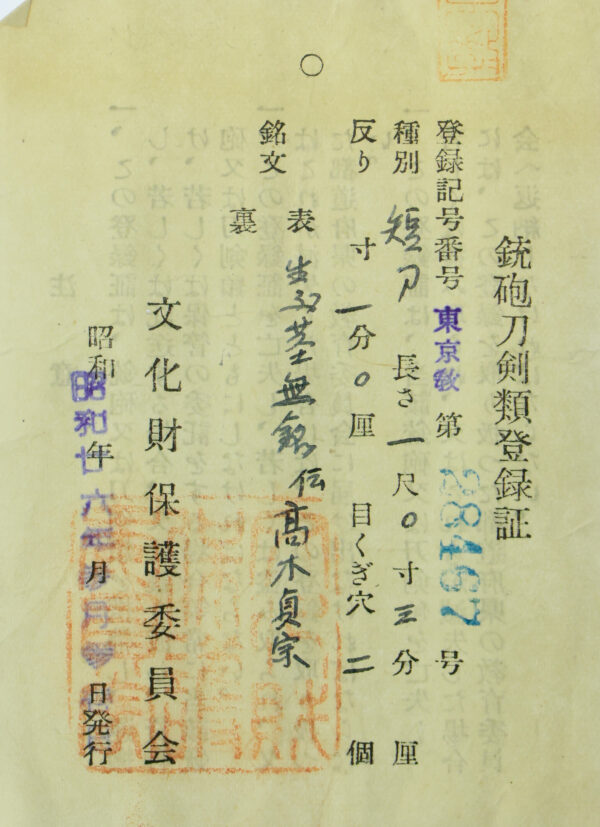 銃砲刀剣類登録証
登録記号番号 東京教 第 28467 号
種別 短刀 長さ 一尺〇寸三分 厘
反り 寸一分〇厘 目くぎ穴 二 個
銘文 表 生茎無銘伝高木貞宗
裏
文化財保護委員会
昭和 年 月 日発行
昭和廿六年 月